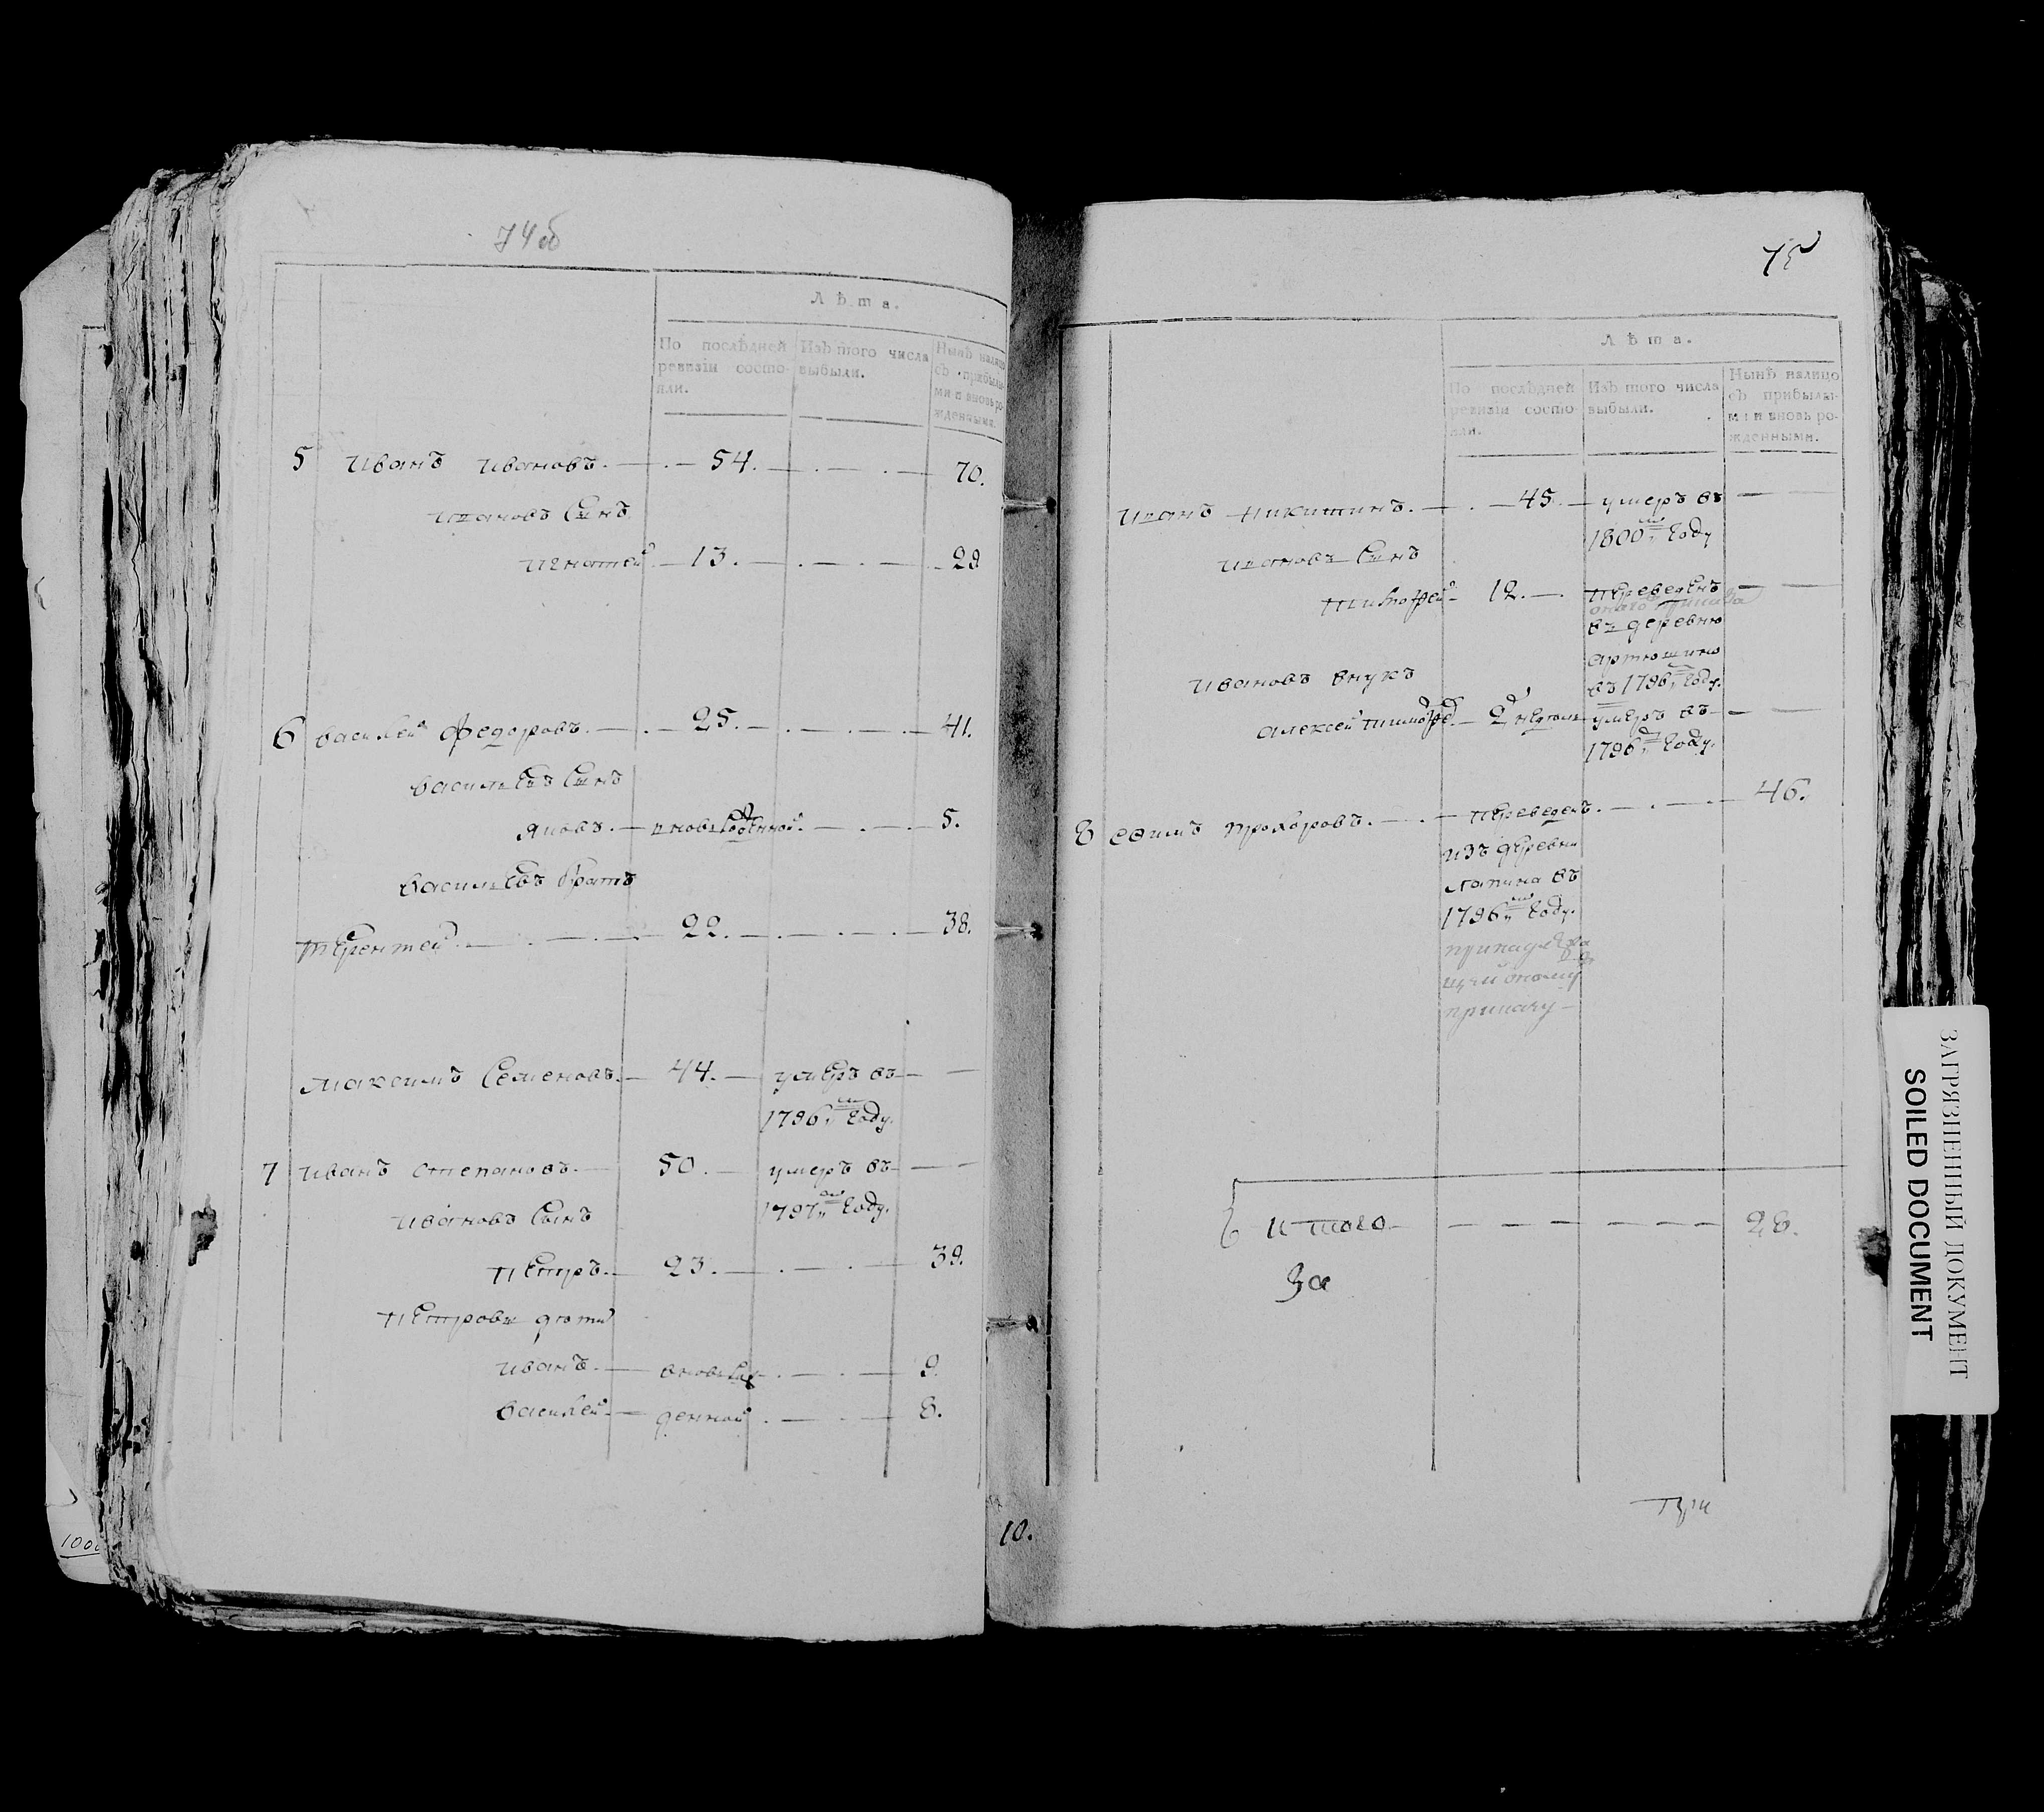 74об
Лѣта.
По послѣдней ревизіи состо-
яли.
Изъ того числа
выбыли.
Нынѣ налицо
съ прибылы-
ми и вновь ро-
жденными.
5 Иванъ Ивановъ. 54. 70.
Ивановъ Сынъ
Игнатей 13. 29
6 Василей Федоровъ. 25. 41.
Васильевъ Сынъ
Яковъ. вновь рожденной. 5.
Васильевъ братъ
Терентей 22. 38.
Максимъ Семеновъ. 44. умеръ въ
1796м году.
7 Иванъ Степановъ. 50. умеръ въ
1797м году.
Ивановъ Сынъ
Петръ. 23. 39.
Петровы дѣти
Иванъ. вновь рож 9.
Василей денной 8.
10.
75
Лѣта.
По послѣдней
ревизіи состо-
яли.
Изъ того числа
выбыли.
Нынѣ налицо
съ прибылы-
ми и вновь ро-
жденными.
Иванъ Никитинъ. 45. умеръ въ
1800м году
Ивановъ Сынъ
Тимофей 12. переведенъ
онаго приказа
въ деревню
Артюшино
въ 1796м году.
Ивановъ внукъ
Алексей Тимофе. 2 недель умеръ въ
1796м году.
8 Евимъ Прохоровъ. переведенъ. 46.
изъ деревни
Лапина въ
1796м году.
принадлежа
щей оному
приказу
Итого 28.
За
При
ЗАГРЯЗНЕННЫЙ ДОКУМЕНТ
SOILED DOCUMENT